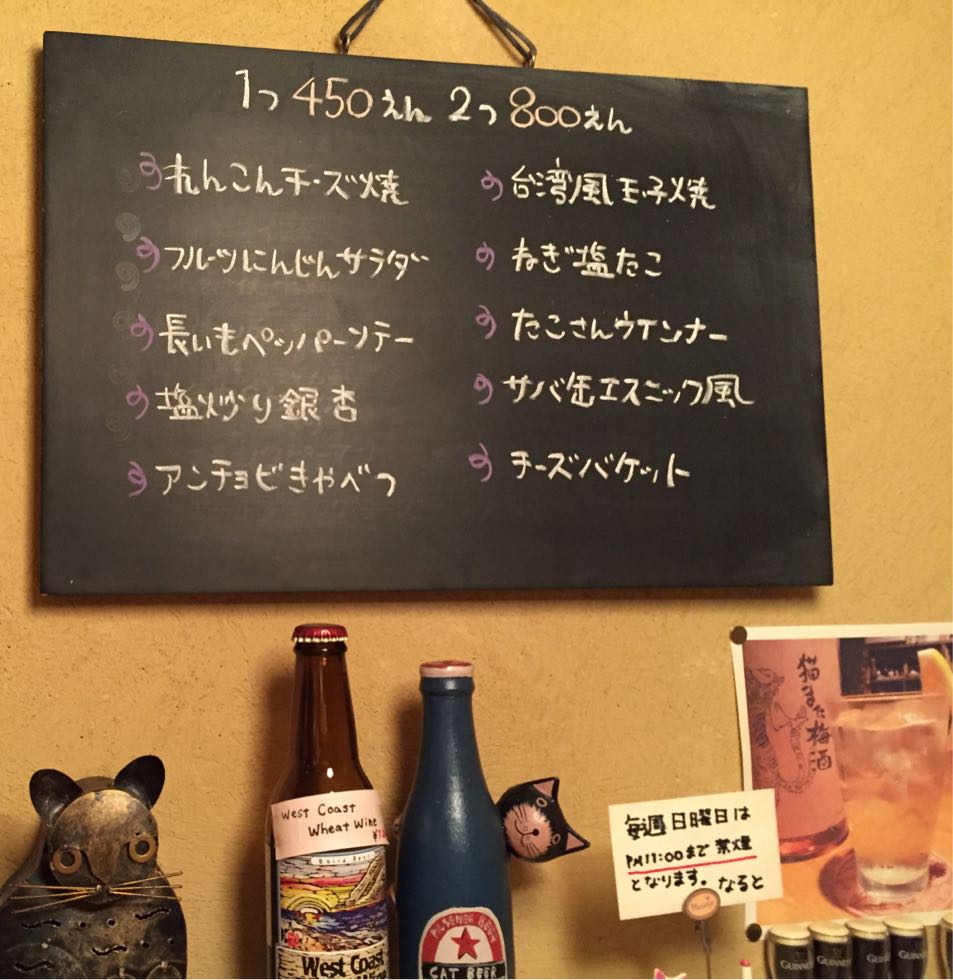 1つ 450えん 2つ 800えん
れんこんチーズ焼
フルーツにんじんサラダ
長いもペッパーソテー
塩炒り銀杏
アンチョビきゃべつ
台湾風玉子焼
ねぎ塩たこ
たこさんウインナー
サバ缶エスニック風
チーズバケット
West Coast
Wheat Wine
Baird Beer
West Coast
PILSENER BEER
CAT BEER
毎週日曜日は
PM11:00まで禁煙
となります。なると
猫また梅酒
GUINNESS
GUINNESS
GUINNESS
GUINNESS